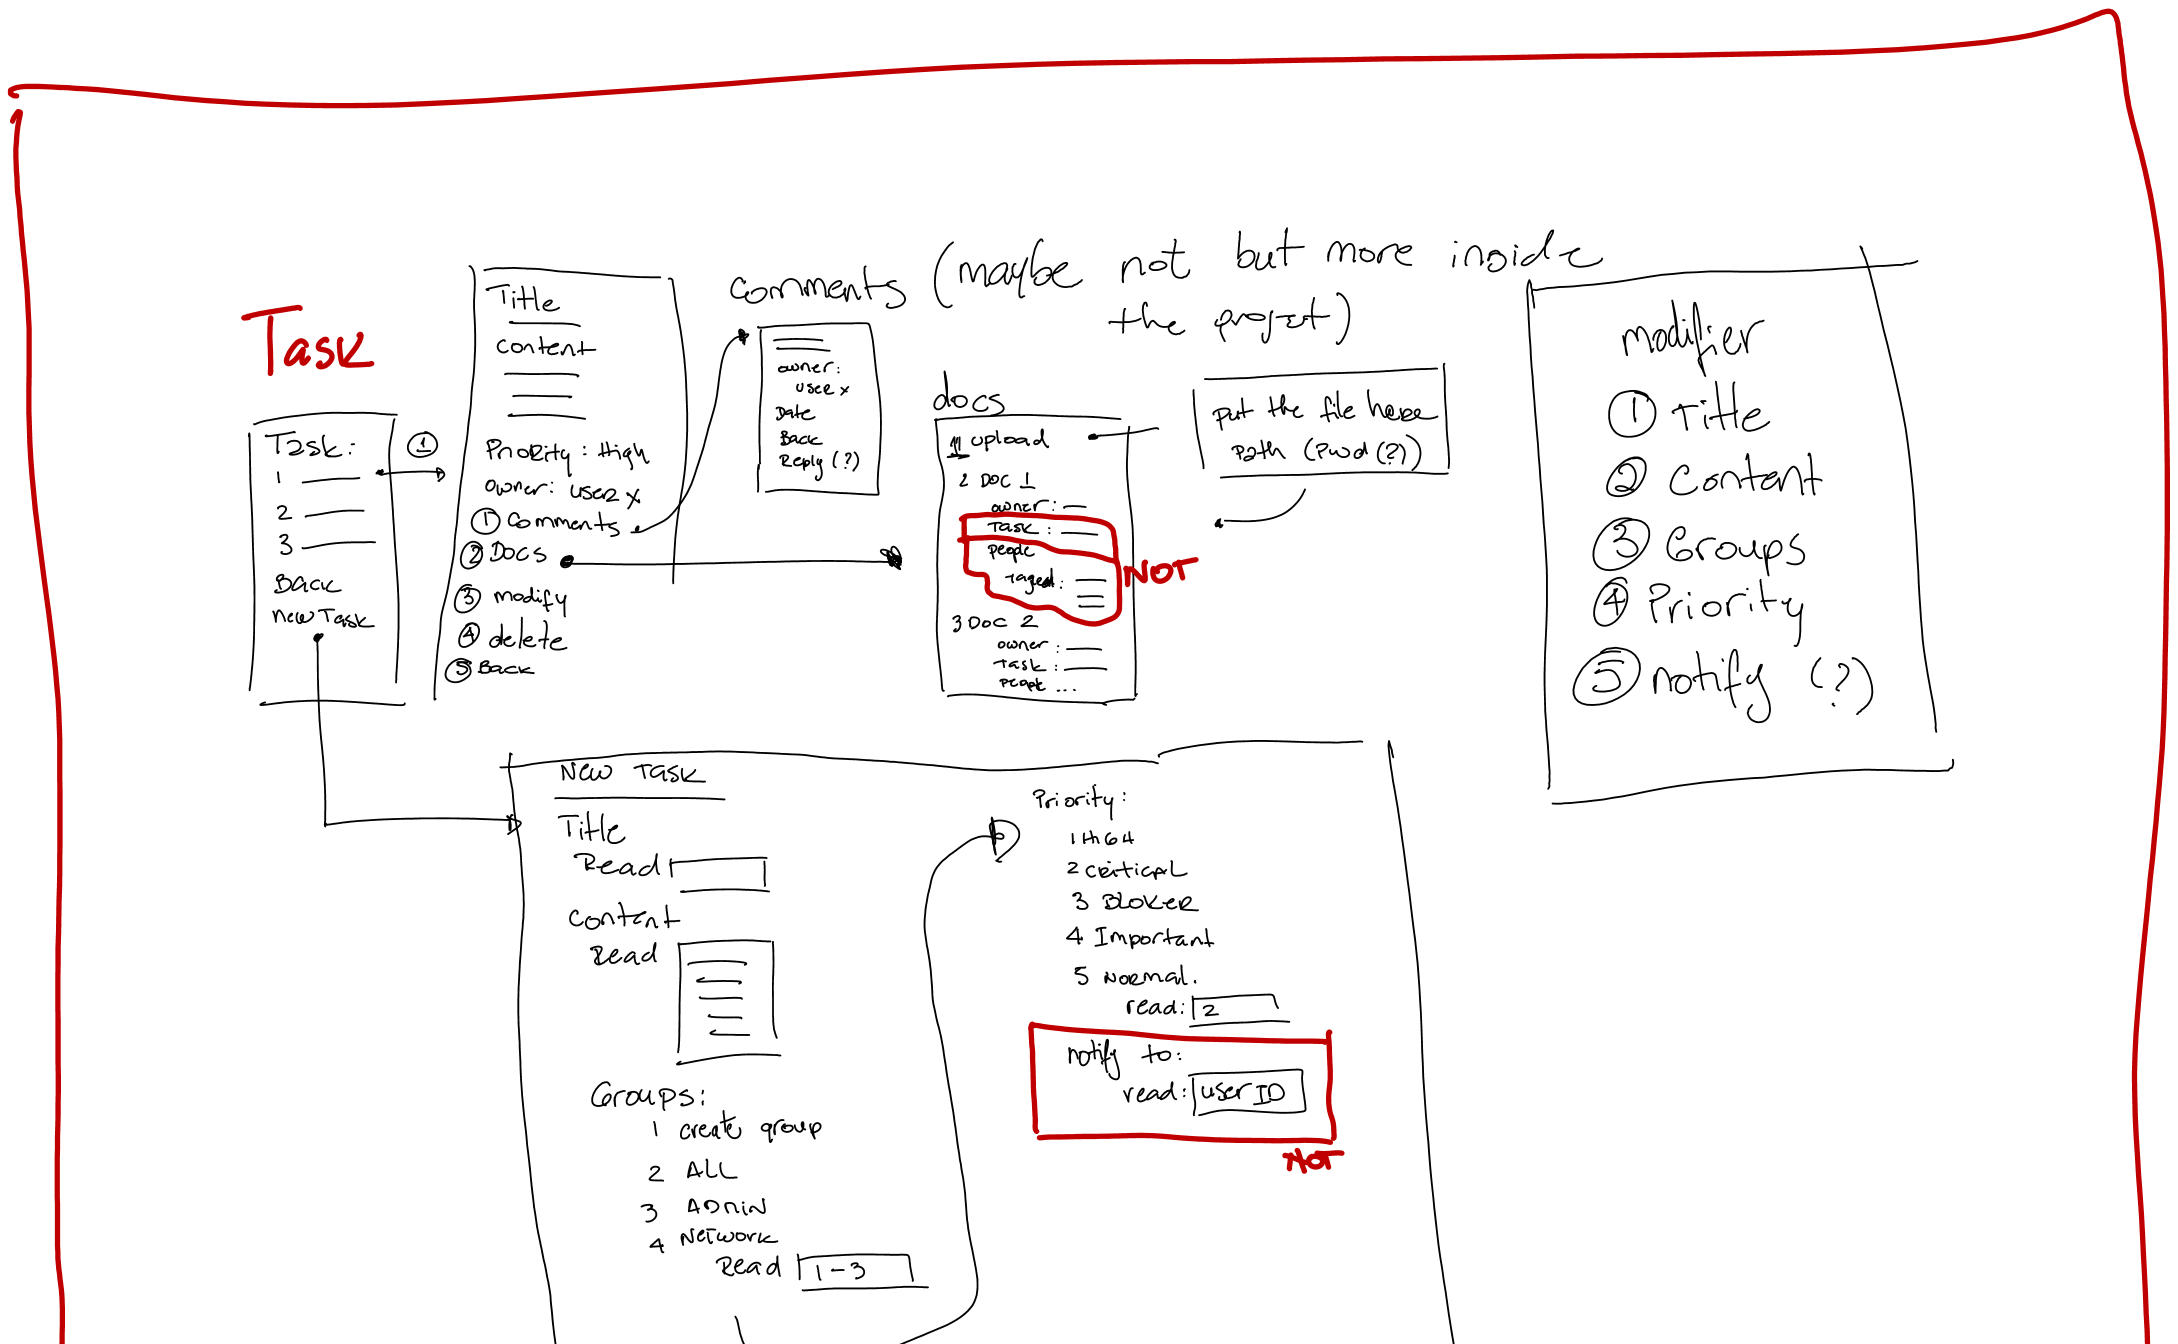 Task
Task:
1
2
3
Back
new Task
1
Title
content
Priority: High
owner: user x
1 Comments
2 Docs
3 modify
4 delete
5 Back
comments (maybe not but more inside
the projet)
owner:
user x
Date
Back
Reply (?)
docs
1 upload
2 Doc 1
owner:
Task:
people
Taged:
NOT
3 Doc 2
owner:
Task:
people ...
put the file here
path (pwd (?))
modifier
1 Title
2 Content
3 Groups
4 Priority
5 notify (?)
New Task
Title
Read
content
Read
Groups:
1 create group
2 ALL
3 ADmiN
4 Network
Read 1-3
Priority:
1
2 critical
3 Bloker
4 Important
5 Normal.
read: 2
notify to:
read: user ID
NOT